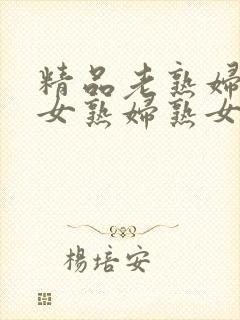 精品老熟婦
女熟婦熟女
楊培安